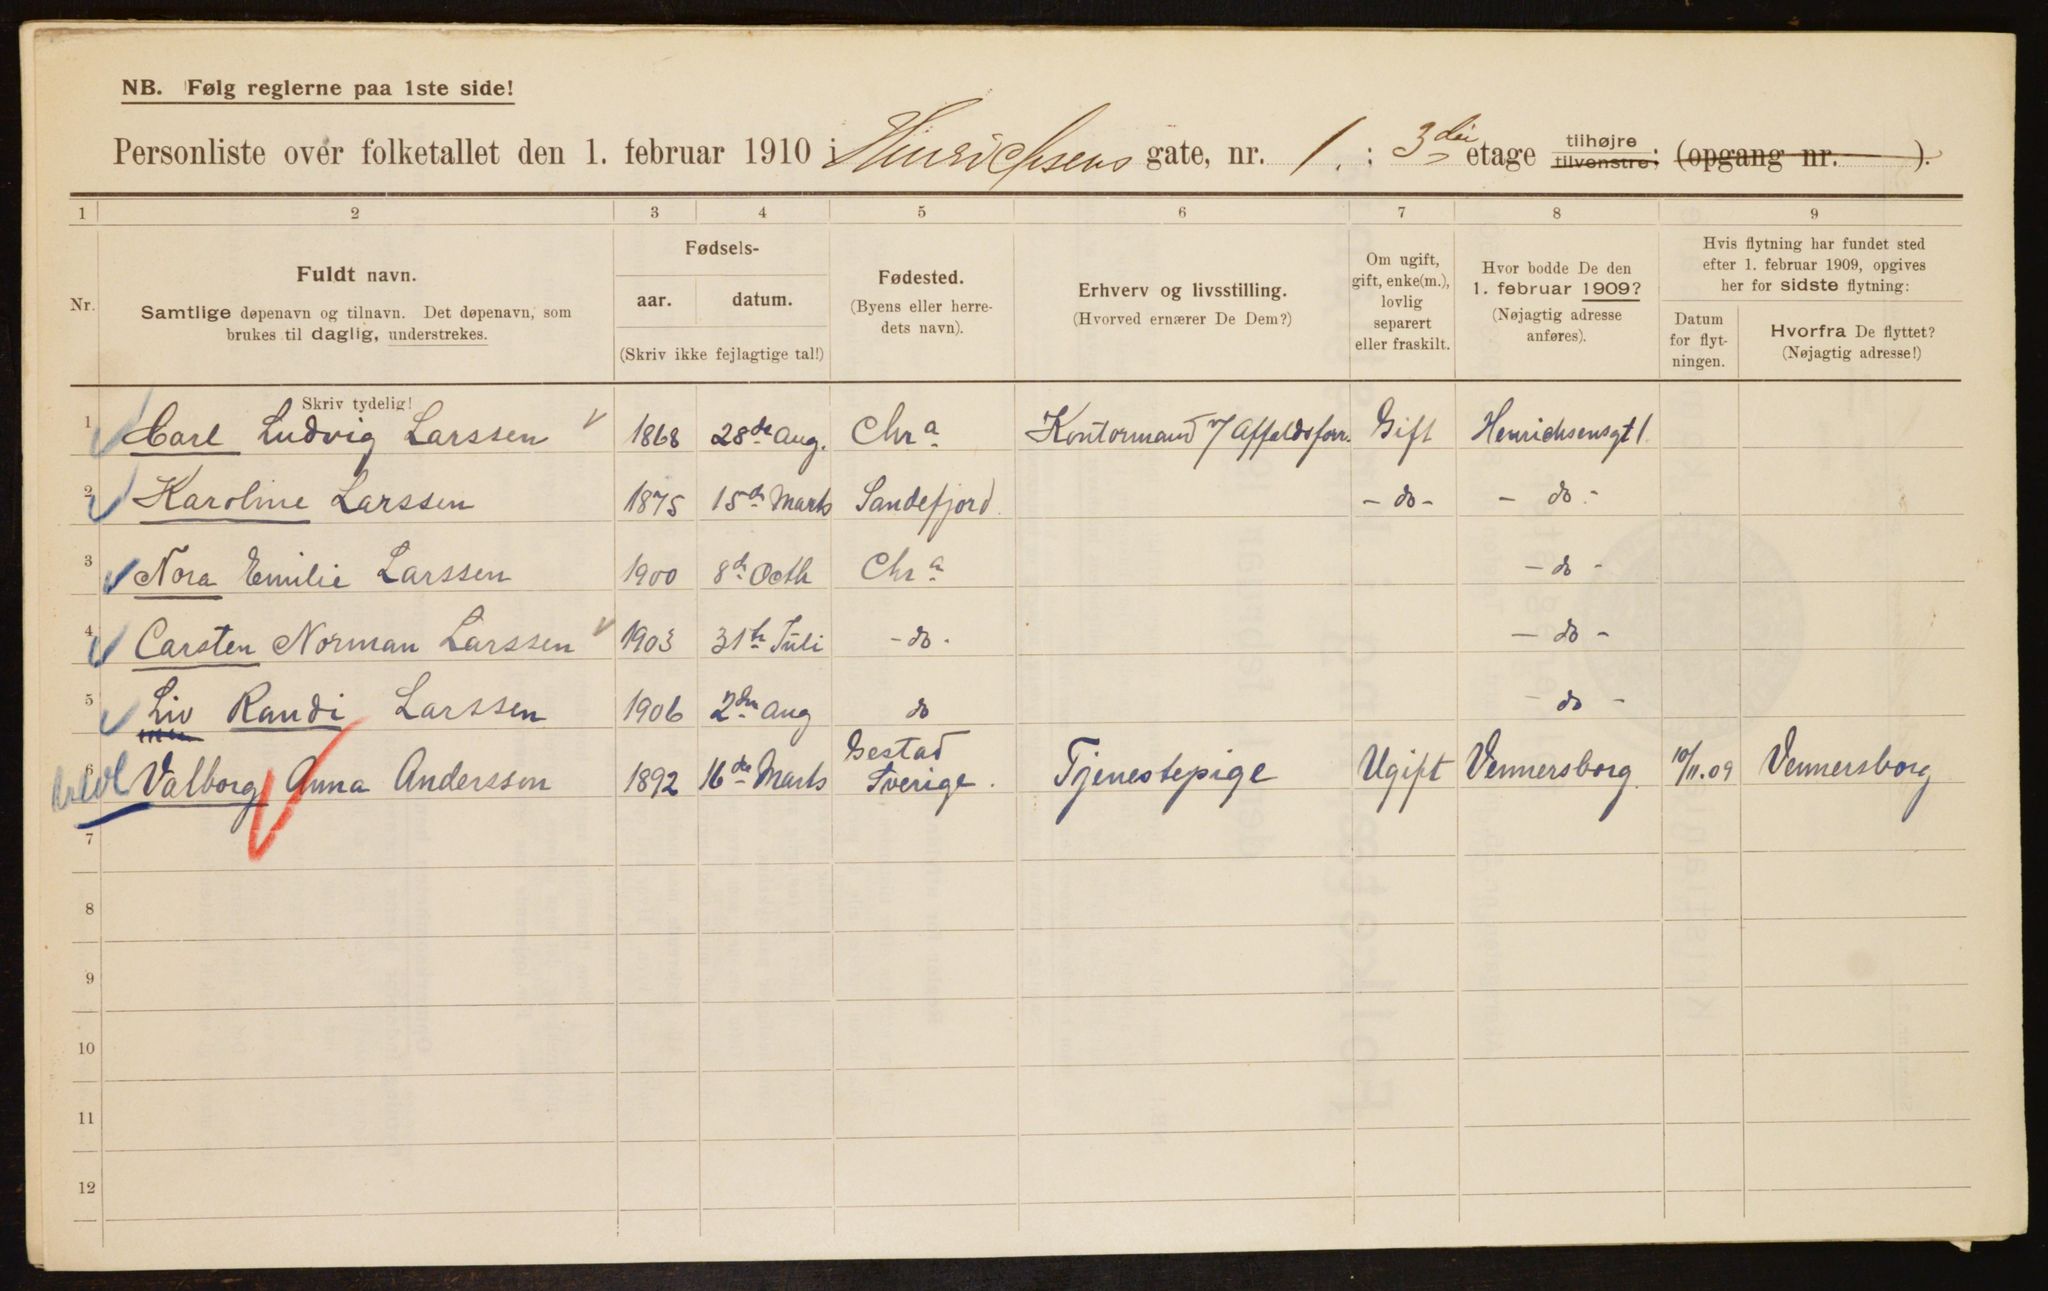 NB. Følg reglerne paa 1ste side!
Personliste over folketallet den 1. februar 1910 i Hinrichsens gate, nr. 1. : 3die etage tilhøjre tilvenstre; (opgang nr. ).
1 2 3 4 5 6 7 8 9
Nr.
Fuldt navn.
Samtlige døpenavn og tilnavn. Det døpenavn, som
brukes til daglig, understrekes.
Fødsels-
aar. datum.
(Skriv ikke fejlagtige tal!)
Fødested.
(Byens eller herre-
dets navn).
Erhverv og livsstilling.
(Hvorved ernærer De Dem?)
Om ugift,
gift, enke(m.),
lovlig
separert
eller fraskilt.
Hvor bodde De den
1. februar 1909?
(Nøjagtig adresse
anføres).
Hvis flytning har fundet sted
efter 1. februar 1909, opgives
her for sidste flytning:
Datum
for flyt-
ningen.
Hvorfra De flyttet?
(Nøjagtig adresse!)
Skriv tydelig!
1 Carl Ludvig Larssen 1868 28de Aug. Chra Kontormand v/ Affaldsforr. Gift Henrichsensgt 1.
2 Karoline Larssen 1875 15de Marts Sandefjord - do - - do -
3 Nora Emilie Larssen 1900 8de Octb Chra - do -
4 Carsten Norman Larssen 1903 31te Juli - do - - do -
5 Liv Randi Larssen 1906 2den Aug do - do -
6 Valborg Anna Andersson 1892 16de Marts Gestad Sverige. Tjenestepige Ugift Vennersborg. 10/11.09 Vennersborg
7
8
9
10
11
12